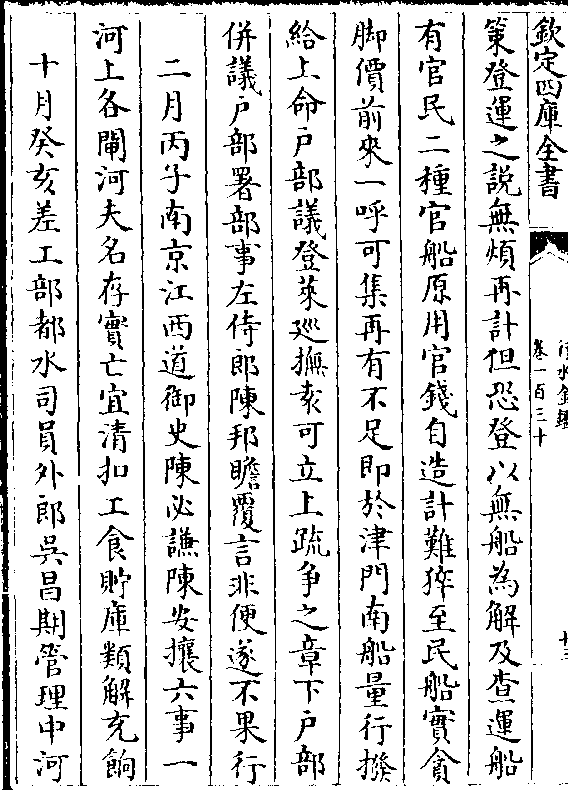 欽定四庫全書
行水金鑑
卷一百三十
十三
策登運之説無煩再計但恐登以無船為解及查運船
有官民二種官船原用官錢自造計難猝至民船實貪
脚價前來一呼可集再有不足即於津門南船量行撥
給上命户部議登萊巡撫袁可立上疏争之章下户部
併議户部署部事左侍郎陳邦瞻覆言非便遂不果行
二月丙子南京江西道御史陳必謙陳安攘六事一
河上各閘河夫名存實亡宜清扣工食貯庫類解充餉
十月癸亥差工部都水司員外郎吳昌期管理中河